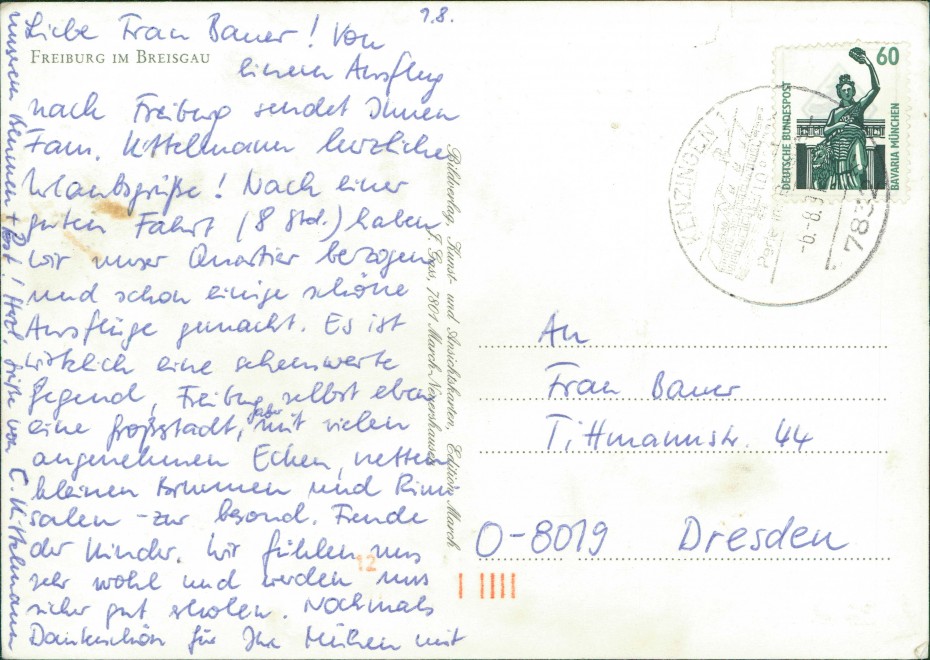 1.8.
Liebe Frau Bauer! Von
FREIBURG IM BREISGAU
einem Ausflug
nach Freiburg sendet Ihnen
Fam. Kittelmann herzliche
Urlaubsgrüße! Nach einer
guten Fahrt (8 Std.) haben
wir unser Quartier bezogen
und schon einige schöne
Ausflüge gemacht. Es ist
wirklich eine sehenswerte
Gegend, Freiburg selbst eben
eine Großstadt, aber mit vielen
angenehmen Ecken, netten
kleinen Brunnen und Rinn
salen - zur besond. Freude
der Kinder. Wir fühlen uns
sehr wohl und werden uns
sicher gut erholen. Nochmals
Dankeschön für Ihr Mühen mit
unseren Blumen + Post! Herzl. Grüße von C. Kittelmann
Bildverlag, Kunst- und Ansichtskarten, Edition March
J. Gass, 7801 March-Neuershausen
60
DEUTSCHE BUNDESPOST
BAVARIA MÜNCHEN
KENZINGEN 1
Perle im
-6.-8.9
783
An
Frau Bauer
Tittmannstr. 44
O-8019 Dresden
12